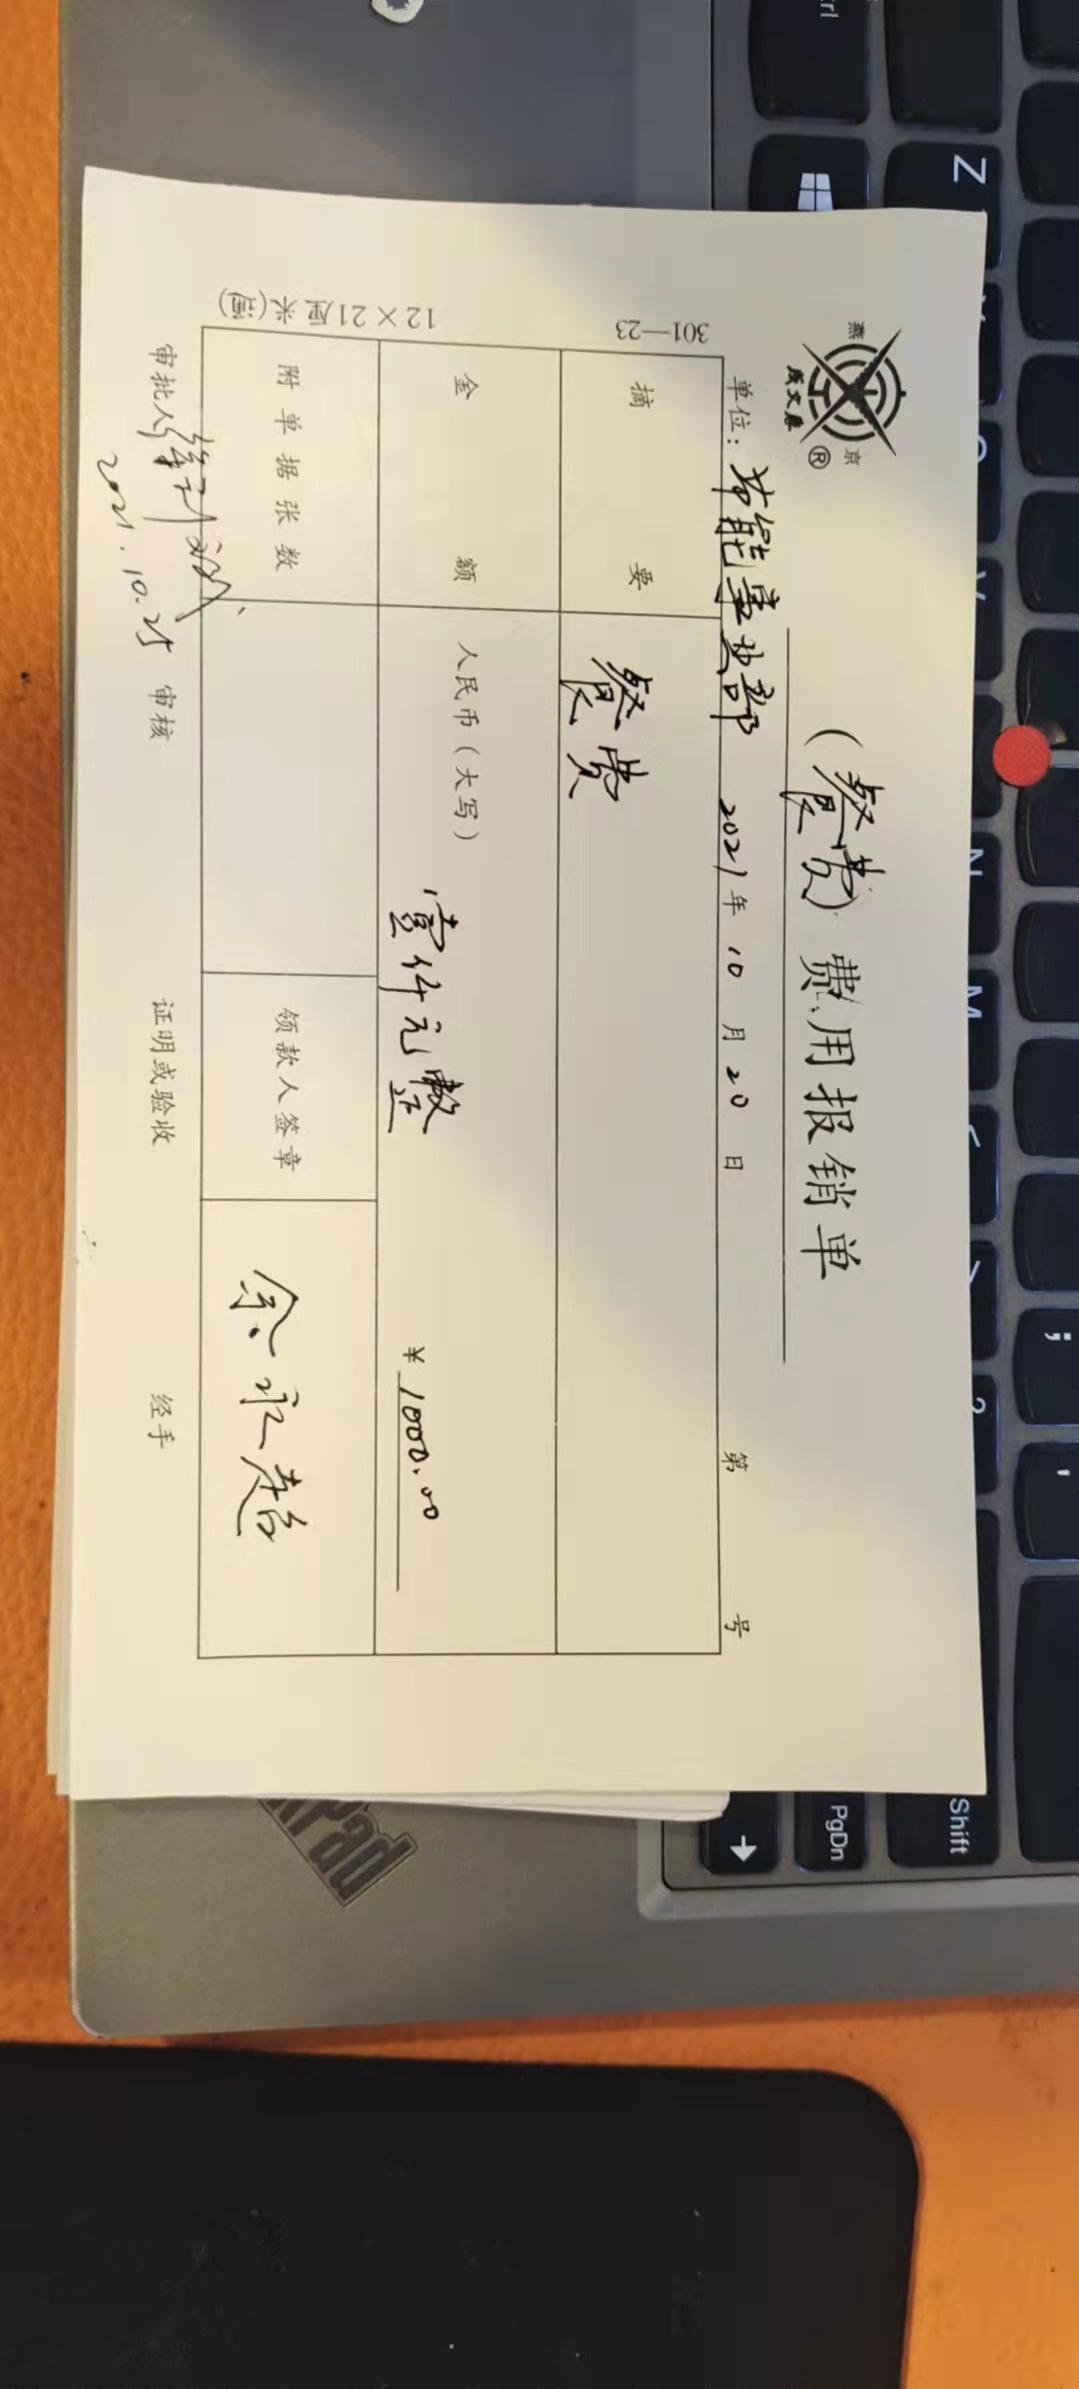 燕 京
成文厚 ®
(餐费)费用报销单
单位：节能事业部 2021年10月20日 第 号
301—23
摘要 餐费
12×21厘米(通)
金额 人民币(大写) 壹仟元整 ¥1000.00
附单据张数 领款人签章 余永超
审批人 审核 证明或验收 经手
2021.10.25
Ctrl
Z
N
M
;
'
Shift
PgDn